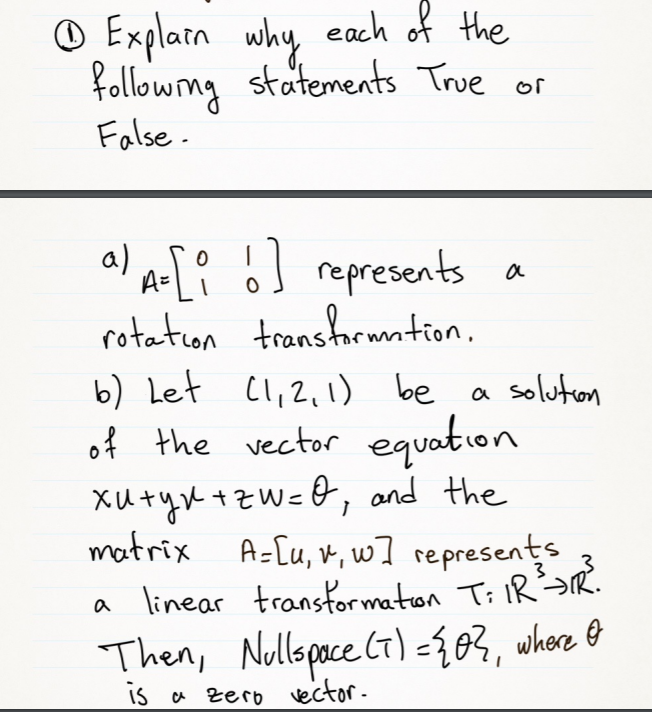 ① Explain why each of the
following statements True or
False.
a) A=[0 1
1 0] represents a
rotation transformation.
b) Let (1,2,1) be a solution
of the vector equation
xu+yv+zw=θ, and the
matrix A=[u,v,w] represents
a linear transformation T: ℝ³→ℝ³.
Then, Nullspace(T)={θ}, where θ
is a zero vector.